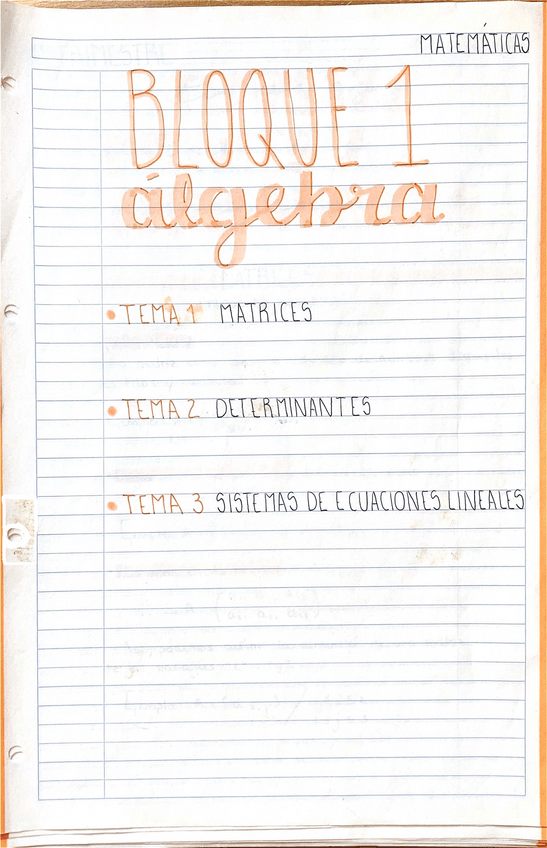 MATEMÁTICAS
BLOQUE 1
álgebra
• TEMA 1 MATRICES
• TEMA 2 DETERMINANTES
• TEMA 3 SISTEMAS DE ECUACIONES LINEALES